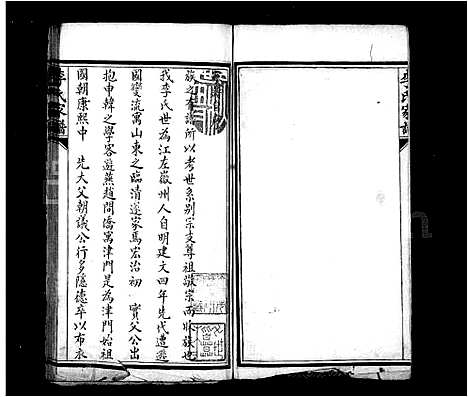 族之有譜所以考世系别宗支尊祖敬宗而收族也
我李氏世為江左徽州人自明建文四年先代遭遜
國變流寓山東之臨清遂家焉宏治初 實父公出
抱申韓之學客遊燕趙間僑寓津門是為津門始祖
國朝康熙中 先大父朝議公行多隱德卒以布衣
李氏家譜
李氏家譜